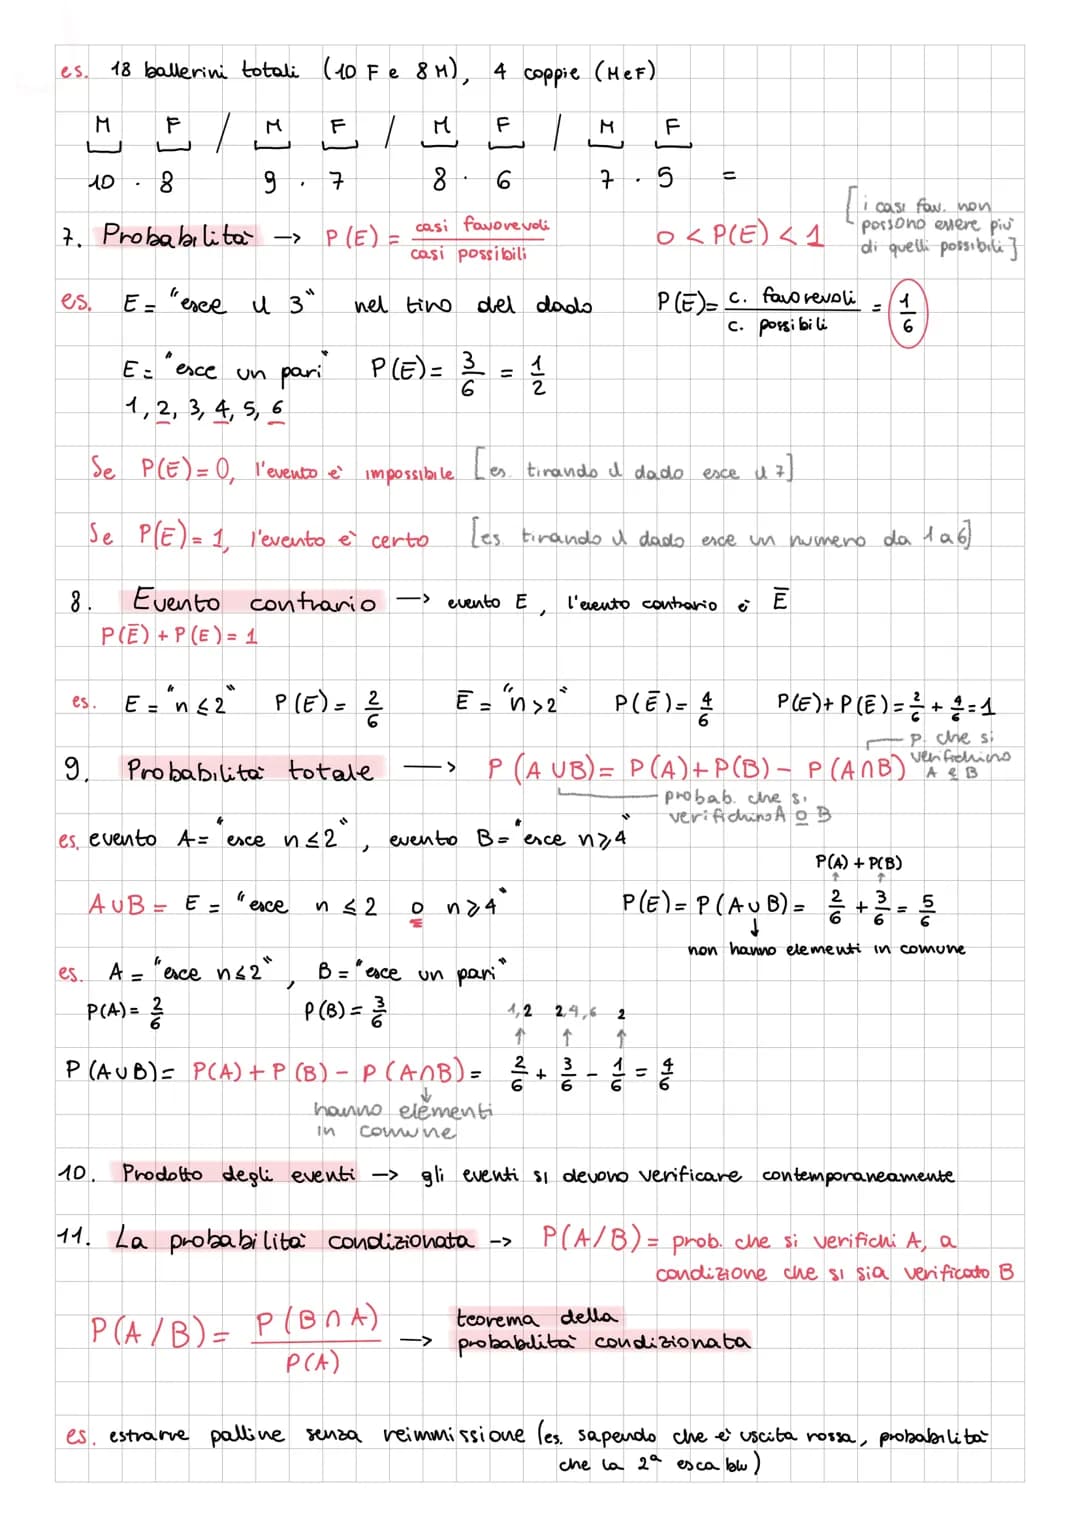 es. 18 ballerini totali (10 F e 8 M), 4 coppie (M e F)
M F / M F / M F / M F
10 · 8 9 · 7 8 · 6 7 · 5 =
[i casi fav. non possono essere più di quelli possibili]
7. Probabilità -> P(E) = casi favorevoli / casi possibili 0 < P(E) < 1
es. E = "esce il 3" nel tiro del dado P(E) = c. favorevoli / c. possibili = 1/6
E = "esce un pari" P(E) = 3/6 = 1/2
1, 2, 3, 4, 5, 6
Se P(E) = 0, l'evento è impossibile [es. tirando il dado esce il 7]
Se P(E) = 1, l'evento è certo [es tirando il dado esce un numero da 1 a 6]
8. Evento contrario -> evento E, l'evento contrario è Ē
P(Ē) + P(E) = 1
es. E = "n ≤ 2" P(E) = 2/6 Ē = "n > 2" P(Ē) = 4/6 P(E) + P(Ē) = 2/6 + 4/6 = 1
9. Probabilità totale -> P(A ∪ B) = P(A) + P(B) - P(A ∩ B)
p. che si verifichino A e B
probab. che si verifichino A o B
es. evento A = "esce n ≤ 2", evento B = "esce n ≥ 4"
P(A) + P(B)
A ∪ B = E = "esce n ≤ 2 o n ≥ 4" P(E) = P(A ∪ B) = 2/6 + 3/6 = 5/6
non hanno elementi in comune
es. A = "esce n ≤ 2", B = "esce un pari"
P(A) = 2/6 P(B) = 3/6 1,2 2,4,6 2
P(A ∪ B) = P(A) + P(B) - P(A ∩ B) = 2/6 + 3/6 - 1/6 = 4/6
hanno elementi
in comune
10. Prodotto degli eventi -> gli eventi si devono verificare contemporaneamente
11. La probabilità condizionata -> P(A/B) = prob. che si verifichi A, a
condizione che si sia verificato B
P(A/B) = P(B ∩ A) / P(A) -> teorema della
probabilità condizionata
es. estrarre palline senza reimmissione (es. sapendo che è uscita rossa, probabilità
che la 2ª esca blu)